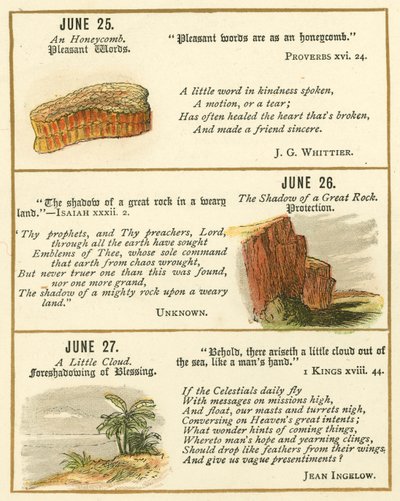 JUNE 25.
An Honeycomb.
Pleasant Words.
"Pleasant words are as an honeycomb."
PROVERBS xvi. 24.
A little word in kindness spoken,
A motion, or a tear;
Has often healed the heart that's broken,
And made a friend sincere.
J. G. WHITTIER.
JUNE 26.
The Shadow of a Great Rock.
Protection.
"The shadow of a great rock in a weary
land."—ISAIAH xxxii. 2.
'Thy prophets, and Thy preachers, Lord,
through all the earth have sought
Emblems of Thee, whose sole command
that earth from chaos wrought,
But never truer one than this was found,
nor one more grand,
The shadow of a mighty rock upon a weary
land."
UNKNOWN.
JUNE 27.
A Little Cloud.
Foreshadowing of Blessing.
"Behold, there ariseth a little cloud out of
the sea, like a man's hand."
1 KINGS xviii. 44.
If the Celestials daily fly
With messages on missions high,
And float, our masts and turrets nigh,
Conversing on Heaven's great intents;
What wonder hints of coming things,
Whereto man's hope and yearning clings,
Should drop like feathers from their wings,
And give us vague presentiments?
JEAN INGELOW.